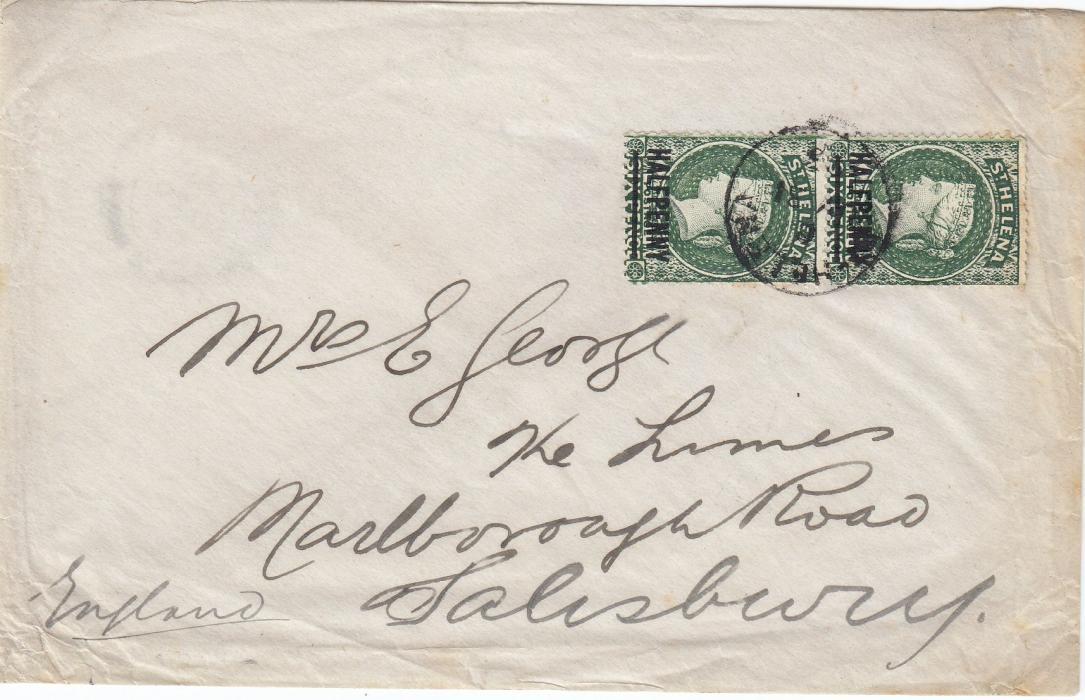 HALFPENNY
ST HELENA
HALFPENNY
ST HELENA
ST HELENA
Mrs E George
The Limes
Marlborough Road
Salisbury.
England